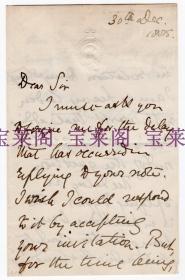 30th Dec.
1885.
Dear Sir
I must ask you
to forgive me for the delay
that has occurred in
replying to your note.
I wish I could respond
to it by accepting
your invitation. But
for the time being
宝莱阁 宝莱阁 宝莱阁
宝莱阁 宝莱阁 宝莱阁